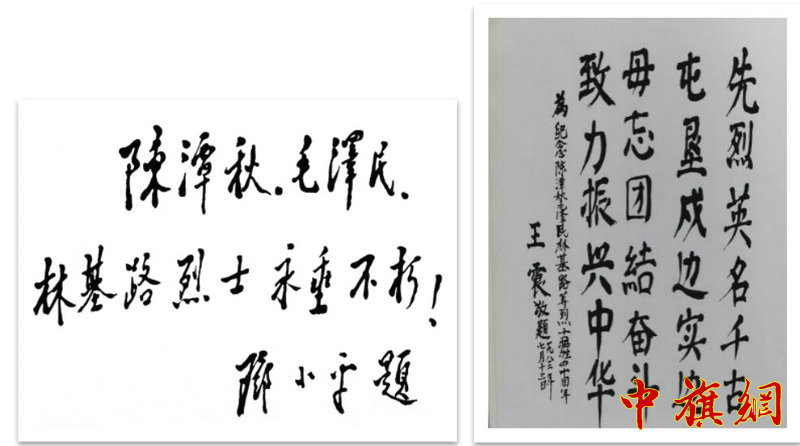 陳潭秋.毛澤民.
林基路烈士永垂不朽!
鄧小平題
先烈英名千古
屯垦戍边实
毋忘团結奋斗
致力振兴中华
為紀念陈潭秋毛泽民林基路等烈士牺牲
王震敬題
七月十二日
中旗網